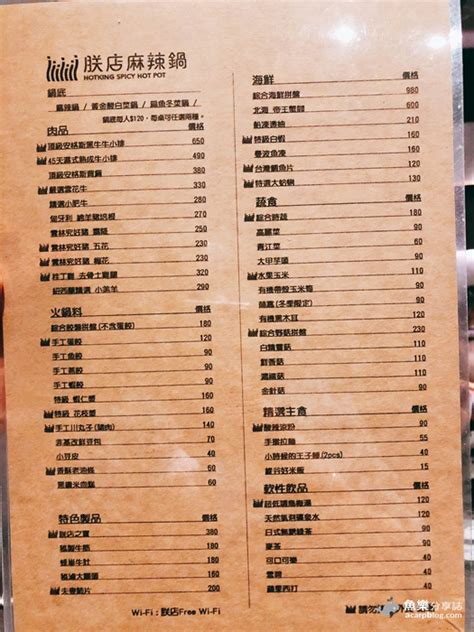 朕店麻辣鍋
HOTKING SPICY HOT POT
鍋底
麻辣鍋 / 黃金酸白菜鍋 / 扁魚冬菜鍋 /
鍋底每人$120，每桌可任選兩種。
肉品 價格
頂級安格斯黑牛牛小排 650
45天濕式熟成牛小排 490
頂級安格斯 380
嚴選雪花牛 380
精選小肥牛 260
匈牙利 綿羊豬培根 290
雲林究好豬 190
雲林究好豬 五花 240
雲林究好豬 梅花 240
桂丁雞 去骨土雞腿 320
紐西蘭精選 小羔羊 260
火鍋料 價格
綜合餃盤拼盤(不含蛋餃) 180
手工蛋餃 120
手工魚餃 90
手工燕餃 90
手工蝦餃 90
特級 蝦仁漿 160
特級 花枝漿 160
手工川丸子(豬肉) 120
非基改鮮豆包 90
小豆皮 90
香酥老油條 60
黑糖米血糕 60
特色製品 價格
朕店之寶 180
160
蜂巢牛肚 160
160
夫妻肺片 200
海鮮 價格
綜合海鮮拼盤 980
北海 帝王蟹腳 600
船凍透抽 280
特級白蝦 180
曼波魚凍 160
台灣鯛魚片 160
特選大蛤蜊 180
蔬食 價格
綜合時蔬 180
高麗菜 90
青江菜 60
大甲芋頭 90
水果玉米 120
有機帶殼玉米筍 120
茼蒿(冬季限定) 90
有機黑木耳 90
綜合野菇拼盤 180
白精靈菇 90
鮮香菇 90
鴻禧菇 90
金針菇 60
精選主食 價格
酸辣涼粉 120
手擀拉麵 50
小時候的王子麵(2pcs) 40
飯 15
軟性飲品 價格
超低溫烏梅湯 120
天然氣泡礦泉水 120
日式無糖綠茶 40
麥茶 40
可口可樂 40
雪碧 40
蘋果西打 40
Wi-Fi：朕店Free Wi-Fi
魚樂分享誌
acarpblog.com